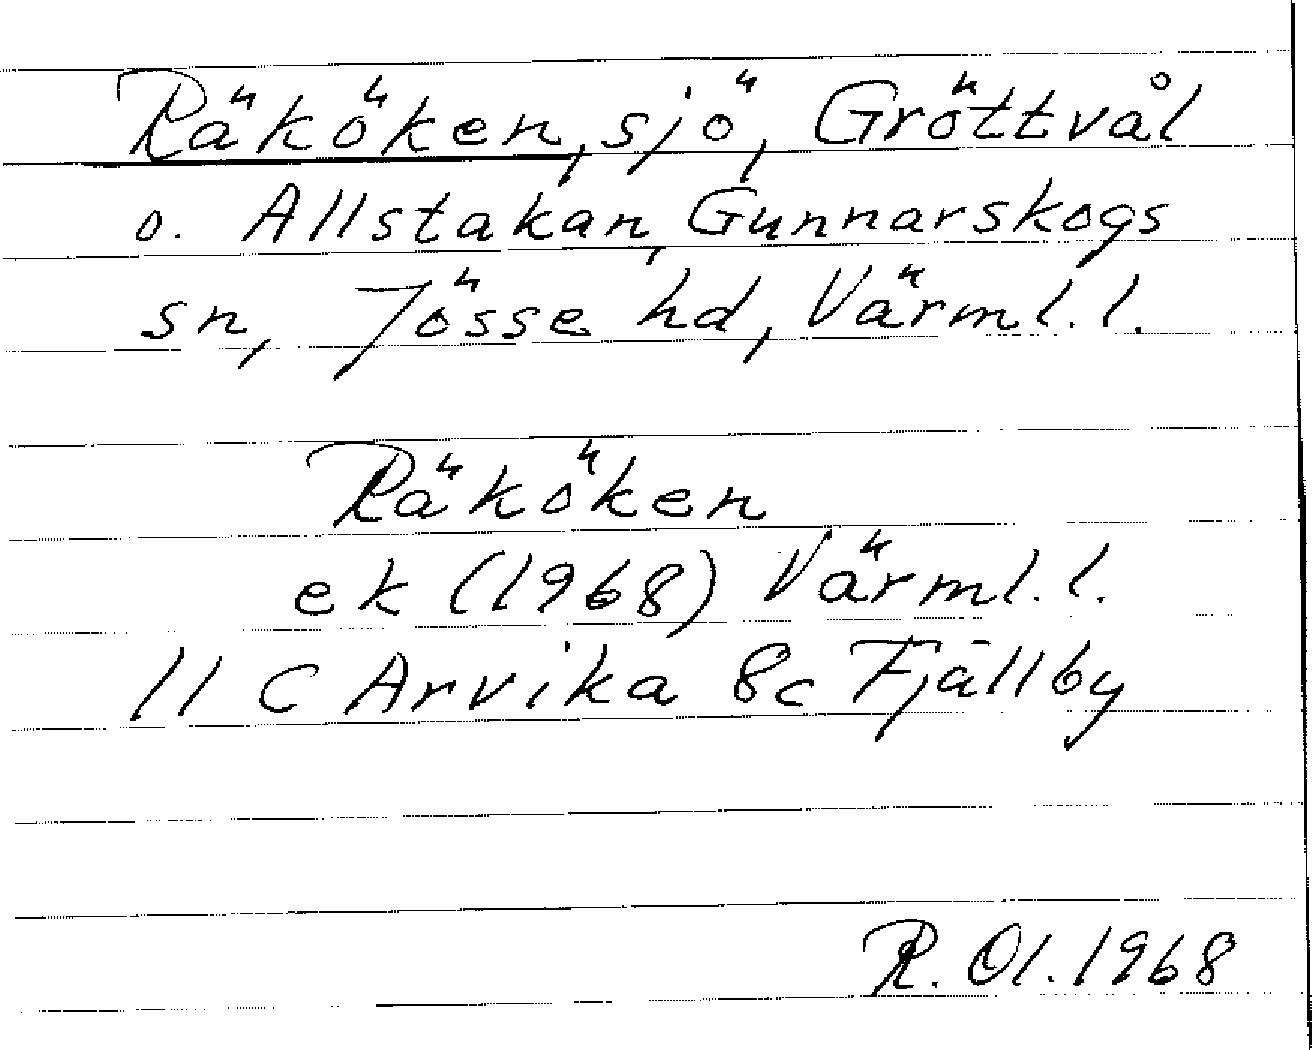 Räköken, sjö, Gröttvål
o. Allstakan, Gunnarskogs
sn, Jösse hd, Värml. l.
Räköken
ek (1968) Värml. l.
11 C Arvika 8c Fjällby
R. Ol. 1968